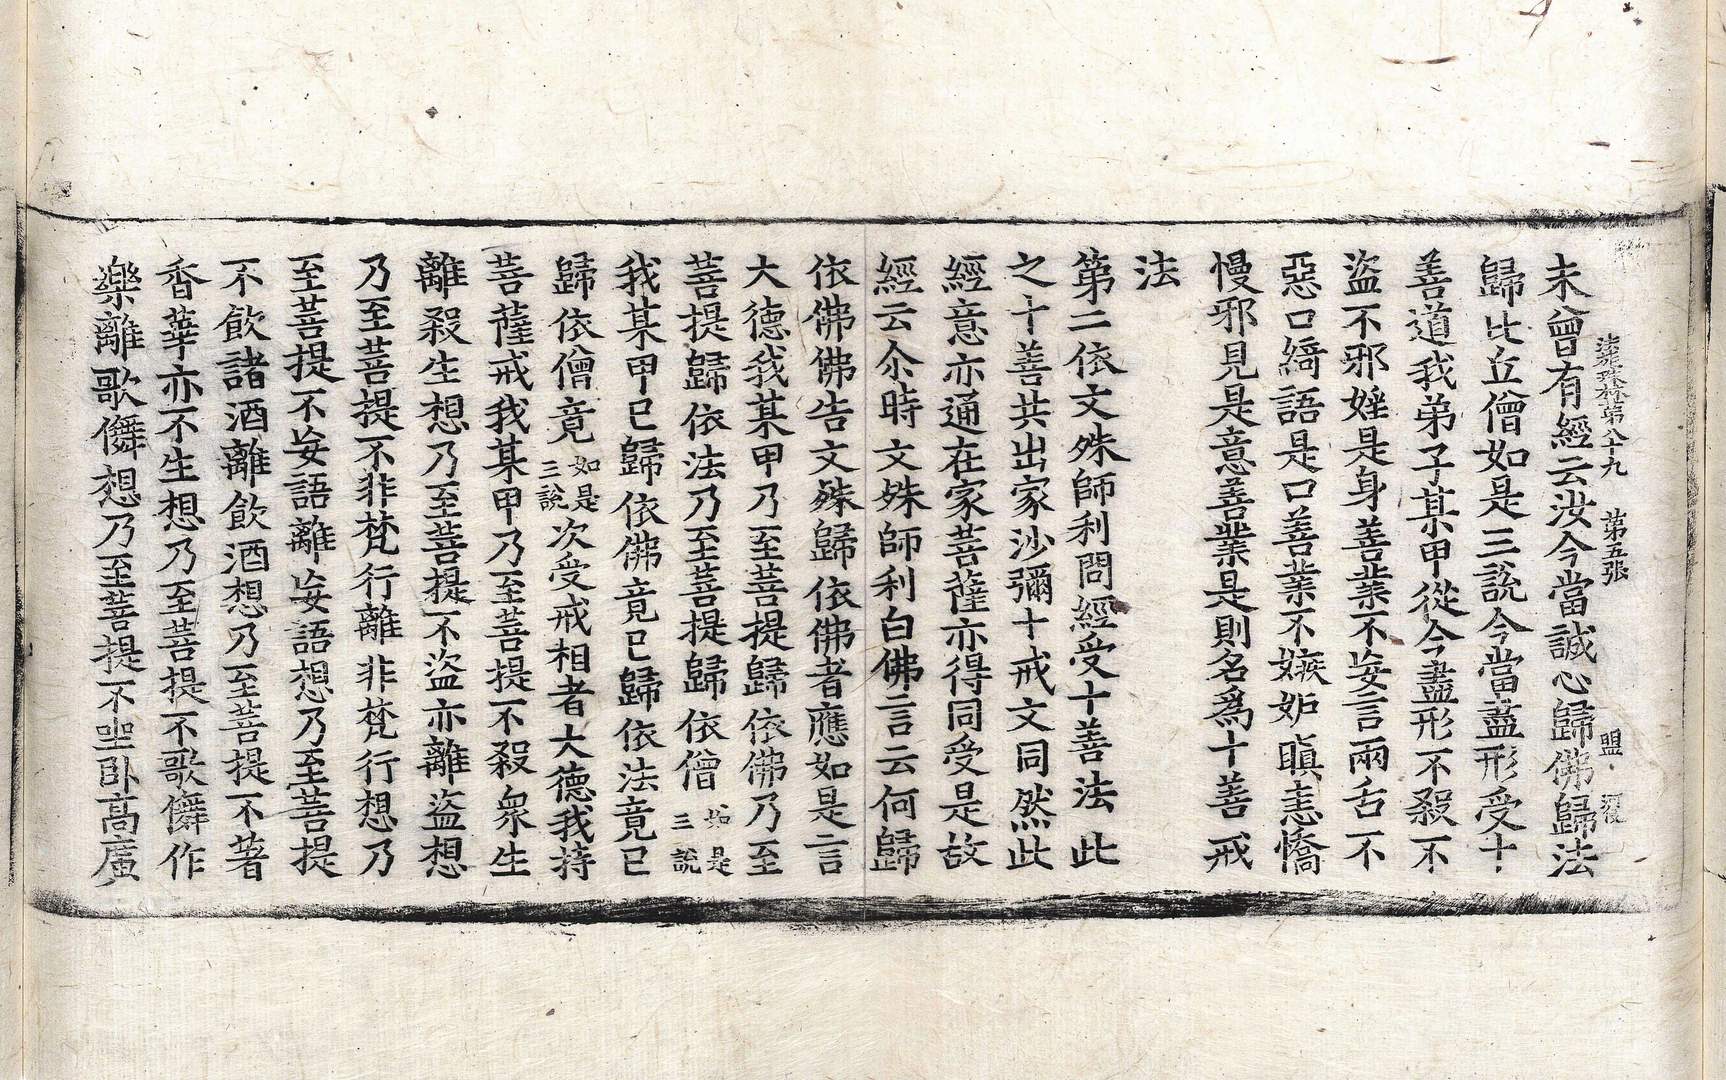 法苑珠林第八十九　第五張　盟
未曾有經云汝今當誠心歸佛歸法
歸比丘僧如是三說今當盡形受十
善道我弟子某甲從今盡形不殺不
盜不邪婬是身善業不妄言兩舌不
惡口綺語是口善業不嫉妬瞋恚憍
慢邪見是意善業是則名爲十善戒
法
第二依文殊師利問經受十善法此
之十善共出家沙彌十戒文同然此
經意亦通在家菩薩亦得同受是故
經云尒時文殊師利白佛言云何歸
依佛佛告文殊歸依佛者應如是言
大德我某甲乃至菩提歸依佛乃至
菩提歸依法乃至菩提歸依僧如是三說
我某甲已歸依佛竟已歸依法竟已
歸依僧竟如是三說次受戒相者大德我持
菩薩戒我某甲乃至菩提不殺衆生
離殺生想乃至菩提不盜亦離盜想
乃至菩提不非梵行離非梵行想乃
至菩提不妄語離妄語想乃至菩提
不飲諸酒離飲酒想乃至菩提不著
香華亦不生想乃至菩提不歌儛作
樂離歌儛想乃至菩提不坐臥高廣